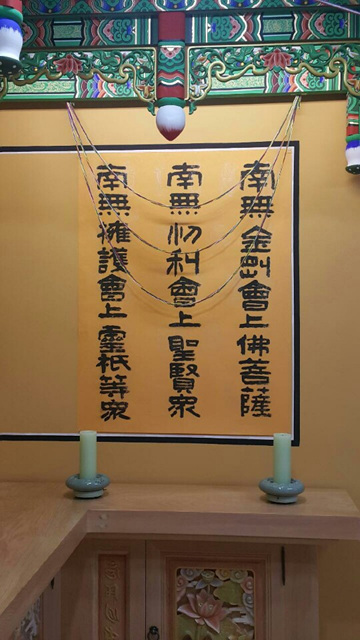 南無金剛會上佛菩薩
南無忉利會上聖賢衆
南無擁護會上靈祇等衆